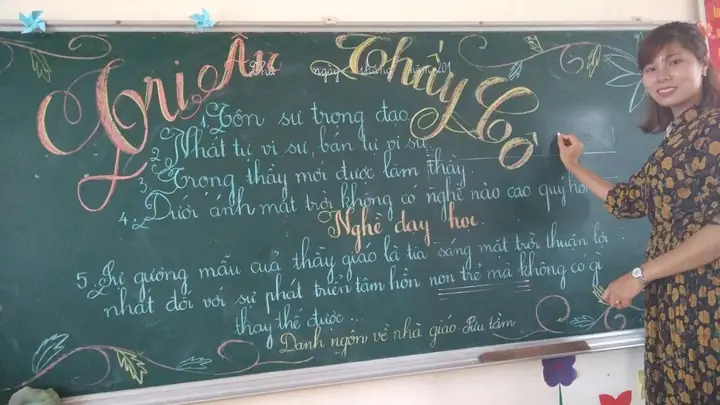 Tri Ân Thầy Cô
Thứ ngày tháng năm 201
1. Tôn sư trọng đạo
2. Nhất tự vi sư, bán tự vi sư.
3. Trọng thầy mới được làm thầy.
4. Dưới ánh mặt trời không có nghề nào cao quý hơn
Nghề dạy học.
5. Sự gương mẫu của thầy giáo là tia sáng mặt trời thuận lợi
nhất đối với sự phát triển tâm hồn non trẻ mà không có gì
thay thế được...
Danh ngôn về nhà giáo. Sưu tầm